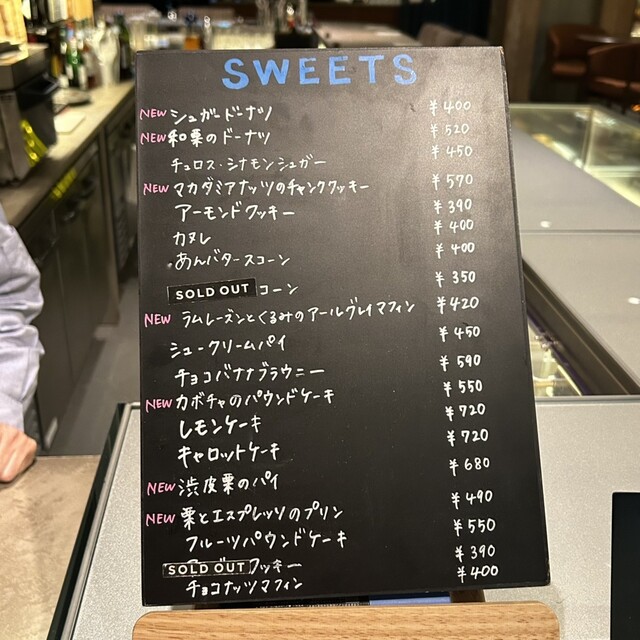 SWEETS
NEW シュガードーナツ ¥400
NEW 和栗のドーナツ ¥520
チュロス・シナモンシュガー ¥450
NEW マカダミアナッツのチャンククッキー ¥570
アーモンドクッキー ¥390
カヌレ ¥400
あんバタースコーン ¥400
SOLD OUT コーン ¥350
NEW ラムレーズンとくるみのアールグレイマフィン ¥420
シュークリームパイ ¥450
チョコバナナブラウニー ¥590
NEW カボチャのパウンドケーキ ¥550
レモンケーキ ¥720
キャロットケーキ ¥720
NEW 渋皮栗のパイ ¥680
NEW 栗とエスプレッソのプリン ¥490
フルーツパウンドケーキ ¥550
SOLD OUT クッキー ¥390
チョコナッツマフィン ¥400